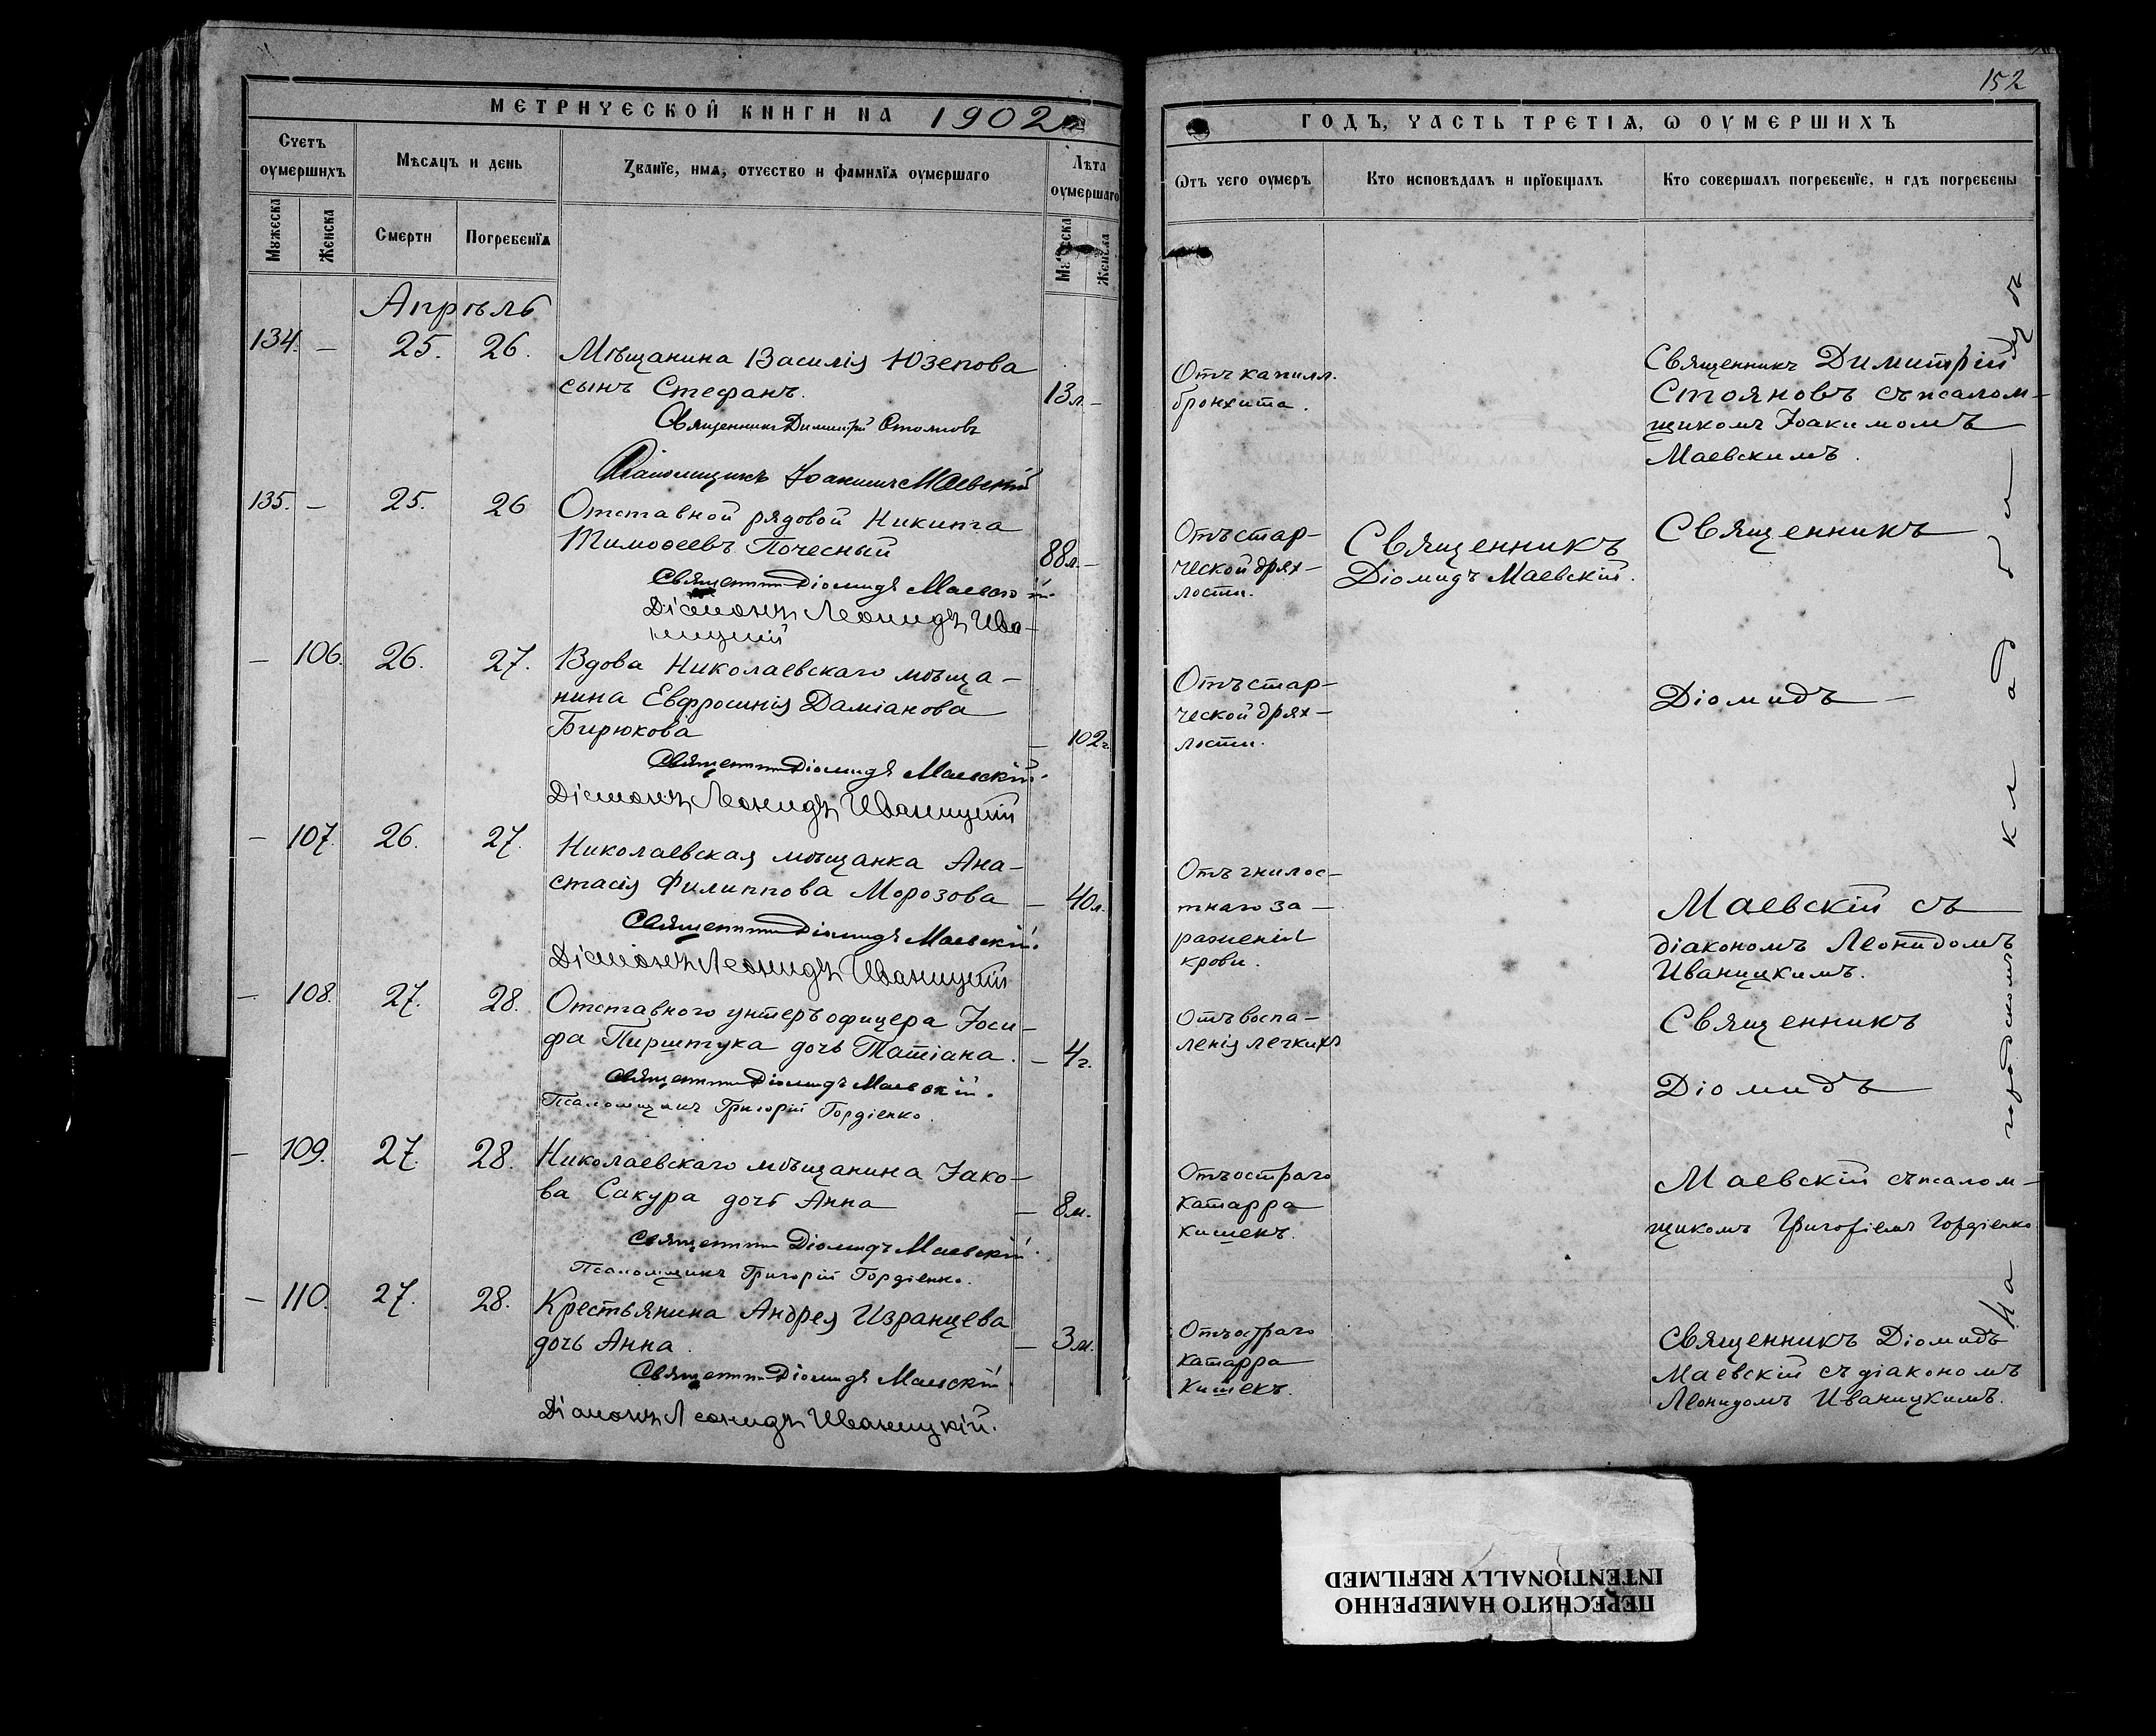 152
МЕТРИЧЕСКОЙ КНИГИ НА 1902
ГОДЪ, ЧАСТЬ ТРЕТІѦ, Ѡ ОУМЕРШИХЪ
Счетъ оумершихъ
Мѣсѧцъ и день
Званїе, имѧ, отчество и фамилїѧ оумершаго
Лѣта оумершаго
Ѿтъ чего оумеръ
Кто исповѣдалъ и прїобщалъ
Кто совершалъ погребенїе, и гдѣ погребены
Мужеска
Женска
Смерти
Погребенїѧ
Мужеска
Женска
Апрѣль
134. — 25. 26.
Мѣщанина Василія Юзепова
сынъ Стефанъ.
13 л. —
Священникъ Димитрій Стояновъ
Псаломщикъ Іоакимъ Маевскій
Отъ капилл.
бронхита.
Священникъ Димитрій
Стояновъ съ псалом-
щикомъ Іоакимомъ
Маевскимъ.
135. — 25. 26
Отставной рядовой Никита
Тимоѳеевъ Почесный
88 л. —
Священникъ Діомидъ Маевскій.
Діаконъ Леонидъ Ива-
ницкій
Отъ стар-
ческой дрях-
лости.
Священникъ
Діомидъ Маевскій.
Священникъ
— 106. 26. 27.
Вдова Николаевскаго мѣща-
нина Евфросинія Даміанова
Бирюкова
— 102 г.
Священникъ Діомидъ Маевскій.
Діаконъ Леонидъ Иваницкій
Отъ стар-
ческой дрях-
лости.
Діомидъ —
— 107. 26. 27.
Николаевская мѣщанка Ана-
стасія Филиппова Морозова
— 40 л.
Священникъ Діомидъ Маевскій.
Діаконъ Леонидъ Иваницкій
Отъ гнилос-
тнаго за-
раженія
крови.
Маевскій съ
діакономъ Леонидомъ
Иваницкимъ.
— 108. 27. 28.
Отставного унтеръ офицера Іоси-
фа Пирштука дочь Татіана.
— 4 г.
Священникъ Діомидъ Маевскій.
Псаломщикъ Григорій Гордіенко.
Отъ воспа-
ленія легкихъ
Священникъ
Діомидъ
— 109. 27. 28.
Николаевскаго мѣщанина Іако-
ва Сакура дочь Анна
— 8 м.
Священникъ Діомидъ Маевскій.
Псаломщикъ Григорій Гордіенко.
Отъ остраго
катарра
кишекъ.
Маевскій съ псалом-
щикомъ Григоріемъ Гордіенко
— 110. 27. 28.
Крестьянина Андрея Изранцева
дочь Анна.
— 3 м.
Священникъ Діомидъ Маевскій
Діаконъ Леонидъ Иваницкій.
Отъ остраго
катарра
кишекъ.
Священникъ Діомидъ
Маевскій съ діакономъ
Леонидомъ Иваницкимъ.
На городскомъ кладбищѣ
ПЕРЕСНЯТО НАМЕРЕННО
INTENTIONALLY REFILMED